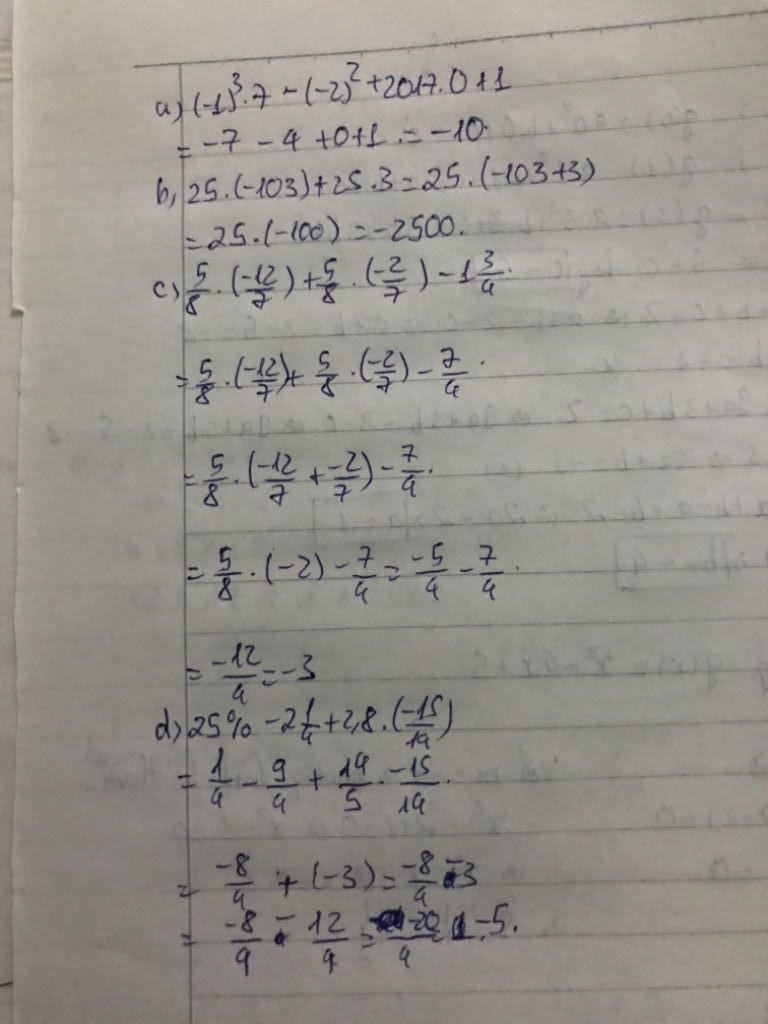 a) (-1)³.7 - (-2)² + 2017.0 + 1
= -7 - 4 + 0 + 1 = -10.
b, 25.(-103) + 25.3 = 25.(-103+3)
= 25.(-100) = -2500.
c) 5/8 . (-12/7) + 5/8 . (-2/7) - 1 3/4.
= 5/8 . (-12/7) + 5/8 . (-2/7) - 7/4.
= 5/8 . (-12/7 + -2/7) - 7/4.
= 5/8 . (-2) - 7/4 = -5/4 - 7/4.
= -12/4 = -3
d) 25% - 2 1/4 + 2,8 . (-15/14)
= 1/4 - 9/4 + 14/5 . -15/14.
= -8/4 + (-3) = -8/4 - 3
= -8/4 - 12/4 = -20/4 = -5.